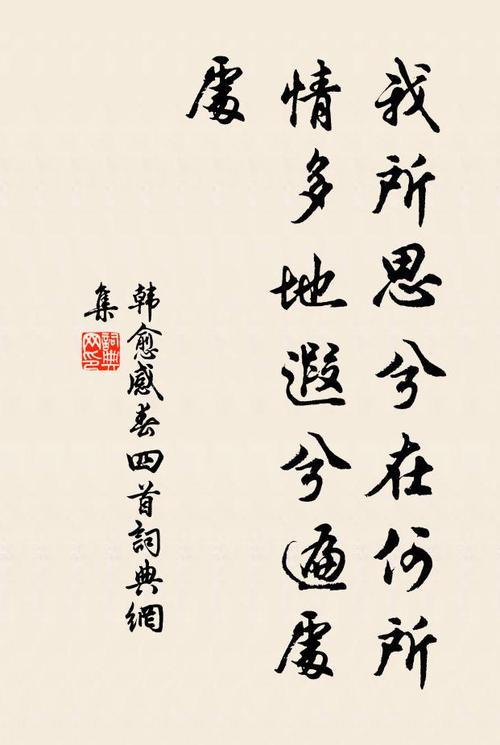 我所思兮在何所
情多地遐兮遍處
處
韩愈感春四首詞典網
集
詞典
网印